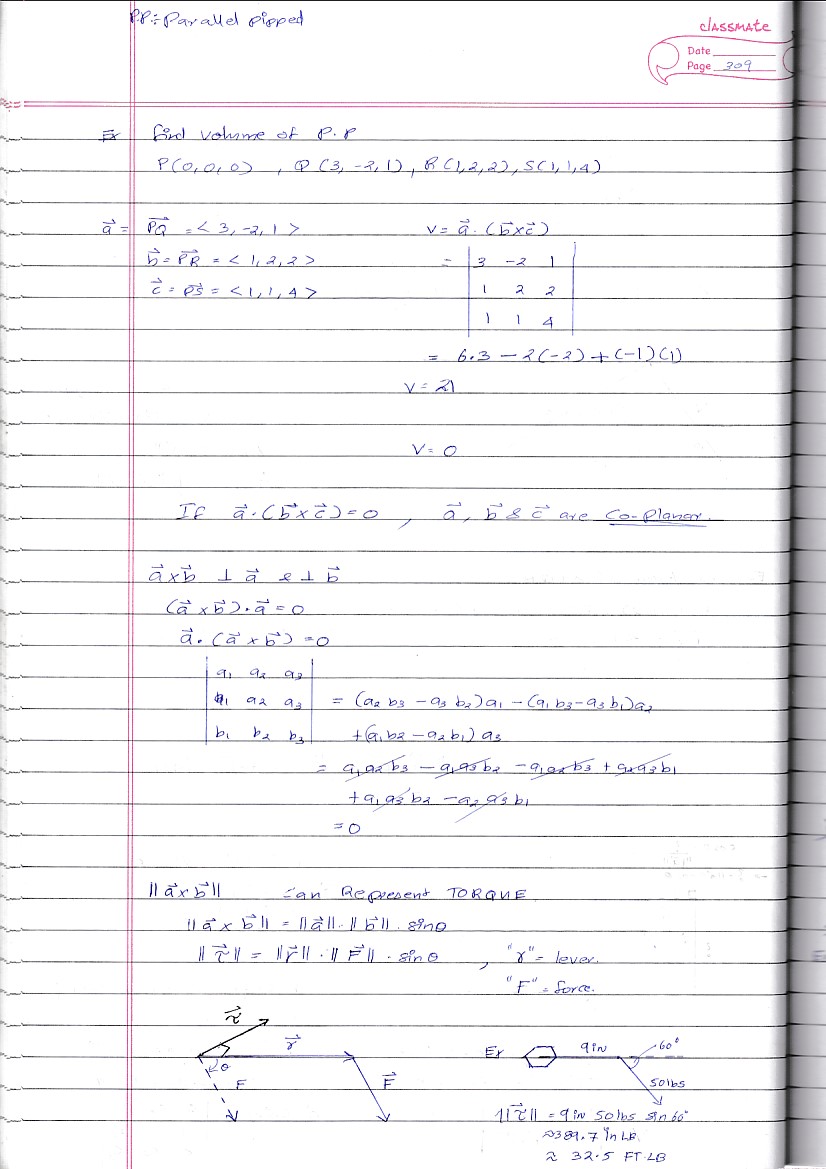 PP:- Parallel pipped
classmate
Date
Page 309
Ex find volume of P.P
P(0,0,0) , Q(3,-2,1), R(1,2,2), S(1,1,4)
a⃗ = PQ⃗ = <3,-2,1> V = a⃗ · (b⃗ x c⃗)
b⃗ = PR⃗ = <1,2,2> = | 3 -2 1 |
c⃗ = PS⃗ = <1,1,4> | 1 2 2 |
| 1 1 4 |
= 6·3 - 2(-2) + (-1)(1)
V = 21
V = 0
If a⃗ · (b⃗ x c⃗) = 0 , a⃗, b⃗ & c⃗ are Co-Planar.
a⃗ x b⃗ ⊥ a⃗ & ⊥ b⃗
(a⃗ x b⃗) · a⃗ = 0
a⃗ · (a⃗ x b⃗) = 0
| a1 a2 a3 |
| a1 a2 a3 | = (a2 b3 - a3 b2) a1 - (a1 b3 - a3 b1) a2
| b1 b2 b3 | + (a1 b2 - a2 b1) a3
= a1 a2 b3 - a1 a3 b2 - a1 a2 b3 + a2 a3 b1
+ a1 a3 b2 - a2 a3 b1
= 0
||a⃗ x b⃗|| can Represent TORQUE
||a⃗ x b⃗|| = ||a⃗|| · ||b⃗|| · sinθ
||τ⃗|| = ||r⃗|| · ||F⃗|| · sinθ , "r" = lever.
"F" = force.
τ⃗ r⃗ θ F F⃗
Ex 9in 60°
50lbs
||τ⃗|| = 9in 50lbs sin 60°
≈389.7 in LB
≈ 32.5 FT·LB